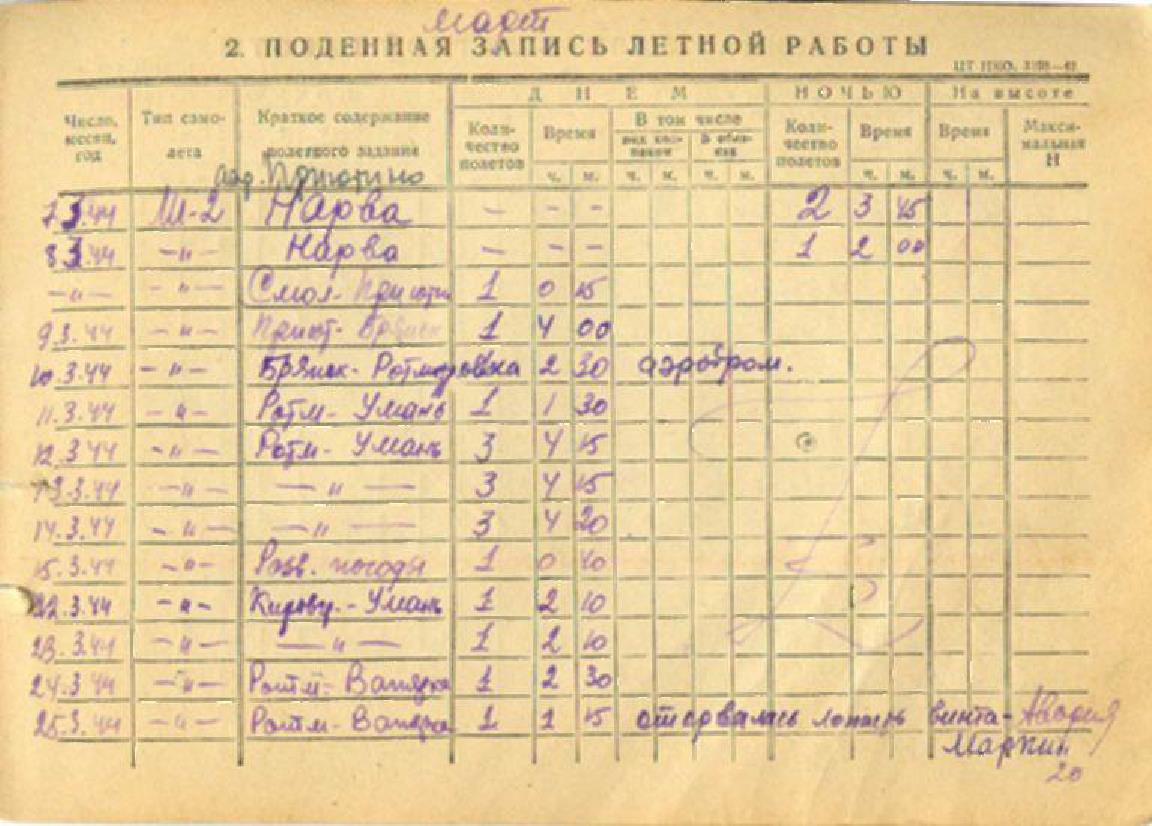 Март
2. ПОДЕННАЯ ЗАПИСЬ ЛЕТНОЙ РАБОТЫ
ЦТ НКО.
Число, месяц, год Тип само-лета Краткое содержание полетного задания Д Н Е М Н О Ч Ь Ю На высоте
Коли-чество полетов Время В том числе Коли-чество полетов Время Время Макси-мальная Н
ч. м. ч. м. ч. м. ч. м. ч. м.
аэр. Приютино
7.3.44 Ш-2 Нарва — — — 2 3 45
8.3.44 —"— Нарва — — — 1 2 00
—"— —"— Смол- 1 0 15
9.3.44 —"— Приют- Брянск 1 4 00
10.3.44 —"— Брянск- Ротмистровка 2 30 аэродром.
11.3.44 —"— Ротм- Умань 1 1 30
12.3.44 —"— Ротм- Умань 3 4 15
13.3.44 —"— —"— 3 4 15
14.3.44 —"— —"— 3 4 20
15.3.44 —"— Разв. погоды 1 0 40
22.3.44 —"— Кирову.- Умань 1 2 10
23.3.44 —"— —"— 1 2 10
24.3.44 —"— Ротм- Вапнярка 1 2 30
25.3.44 —"— Ротм- Вапнярка 1 1 15 оторвалась лопасть винта- Авария
Маркин
20